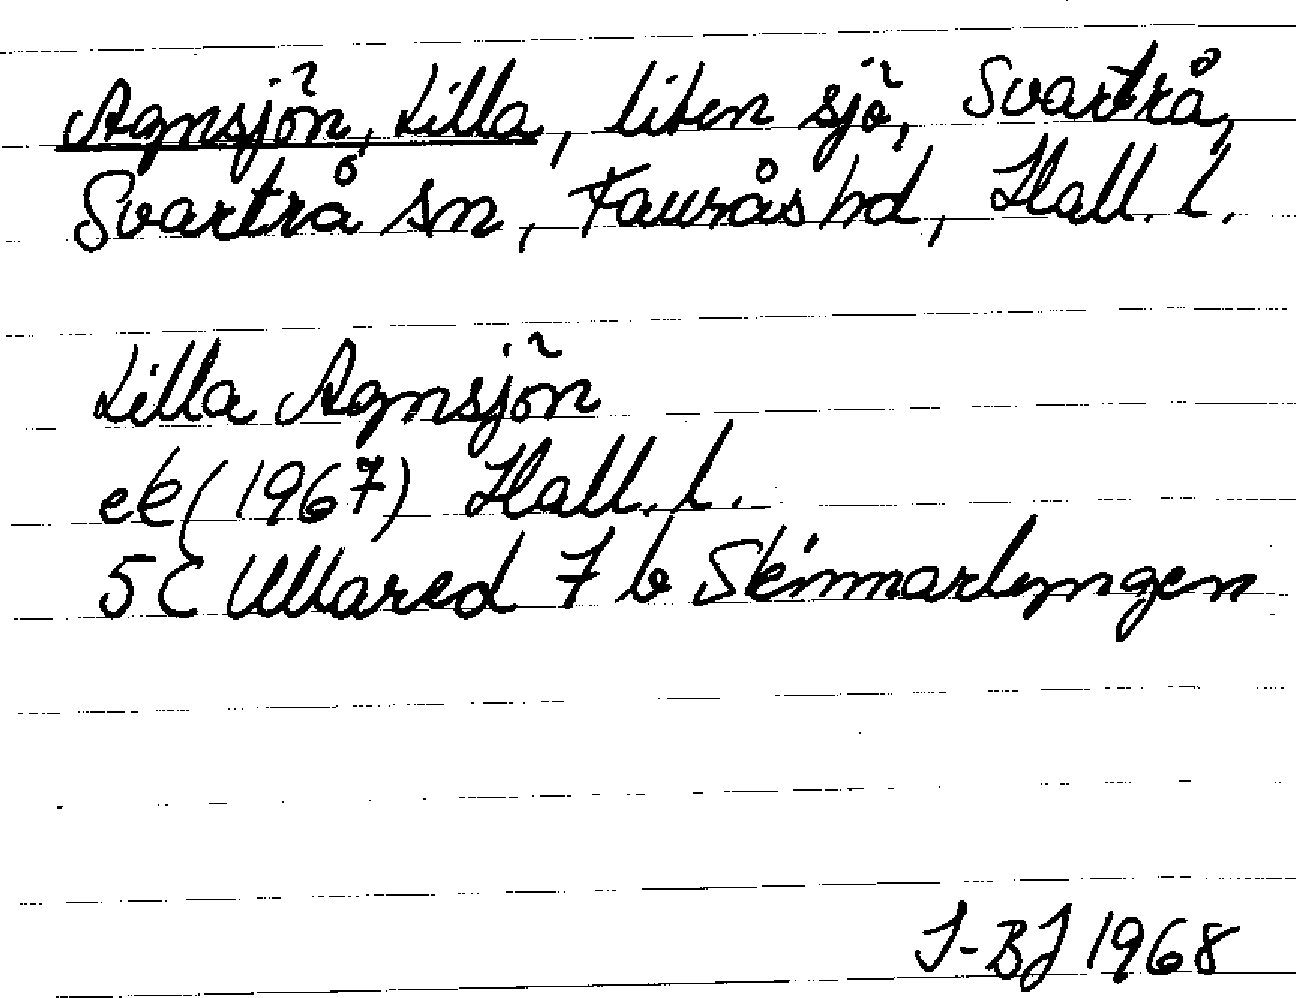 Agnsjön, Lilla, liten sjö, Svartrå,
Svartrå sn, Faurås hd, Hall. l.
Lilla Agnsjön
ek (1967) Hall. l.
5 C Ullared 7 b Skinnarlyngen
I-BJ 1968